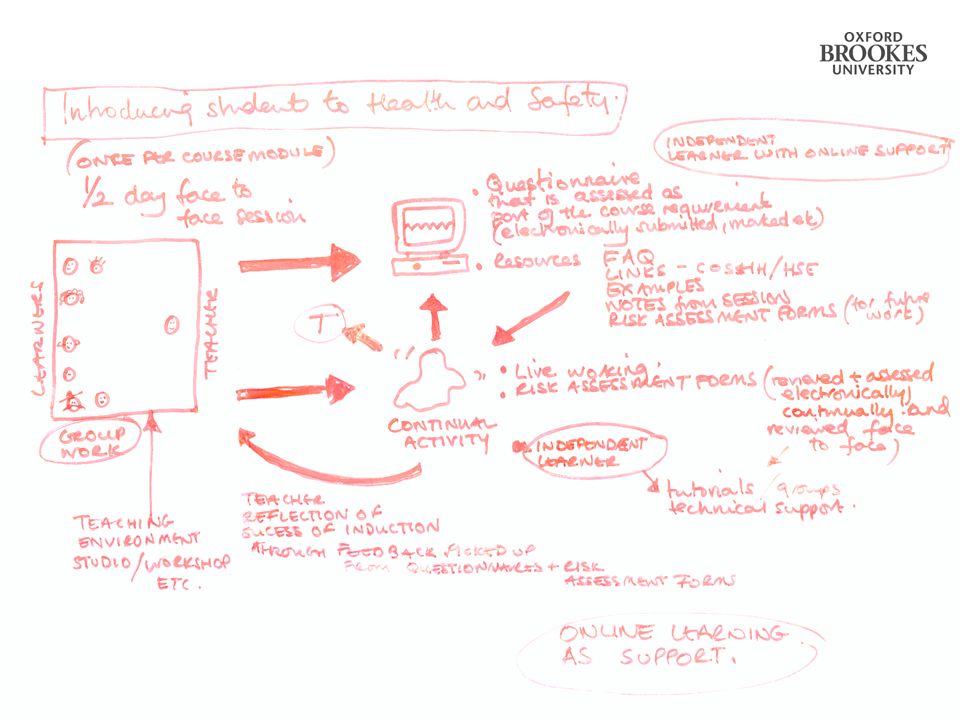 OXFORD
BROOKES
UNIVERSITY
Introducing students to Health and Safety.
(ONCE PER COURSE MODULE)
1/2 day face to
face session
INDEPENDENT
LEARNER WITH ONLINE SUPPORT
• Questionnaire
that is assessed as
part of the course requirement
(electronically submitted, marked etc)
• Resources
FAQ
LINKS - COSHH/HSE
EXAMPLES
NOTES from SESSION
RISK ASSESSMENT FORMS (for future
work)
LEARNERS
TEACHER
T
• Live working:
• RISK ASSESSMENT FORMS (reviewed + assessed
electronically
continually and
reviewed face
to face)
CONTINUAL
ACTIVITY
GROUP
WORK
INDEPENDENT
LEARNER
tutorials / groups
technical support.
TEACHING
ENVIRONMENT
STUDIO/WORKSHOP
ETC.
TEACHER
REFLECTION OF
SUCESS OF INDUCTION
THROUGH FEEDBACK PICKED UP
FROM QUESTIONNAIRES + RISK
ASSESSMENT FORMS
ONLINE LEARNING
AS SUPPORT.